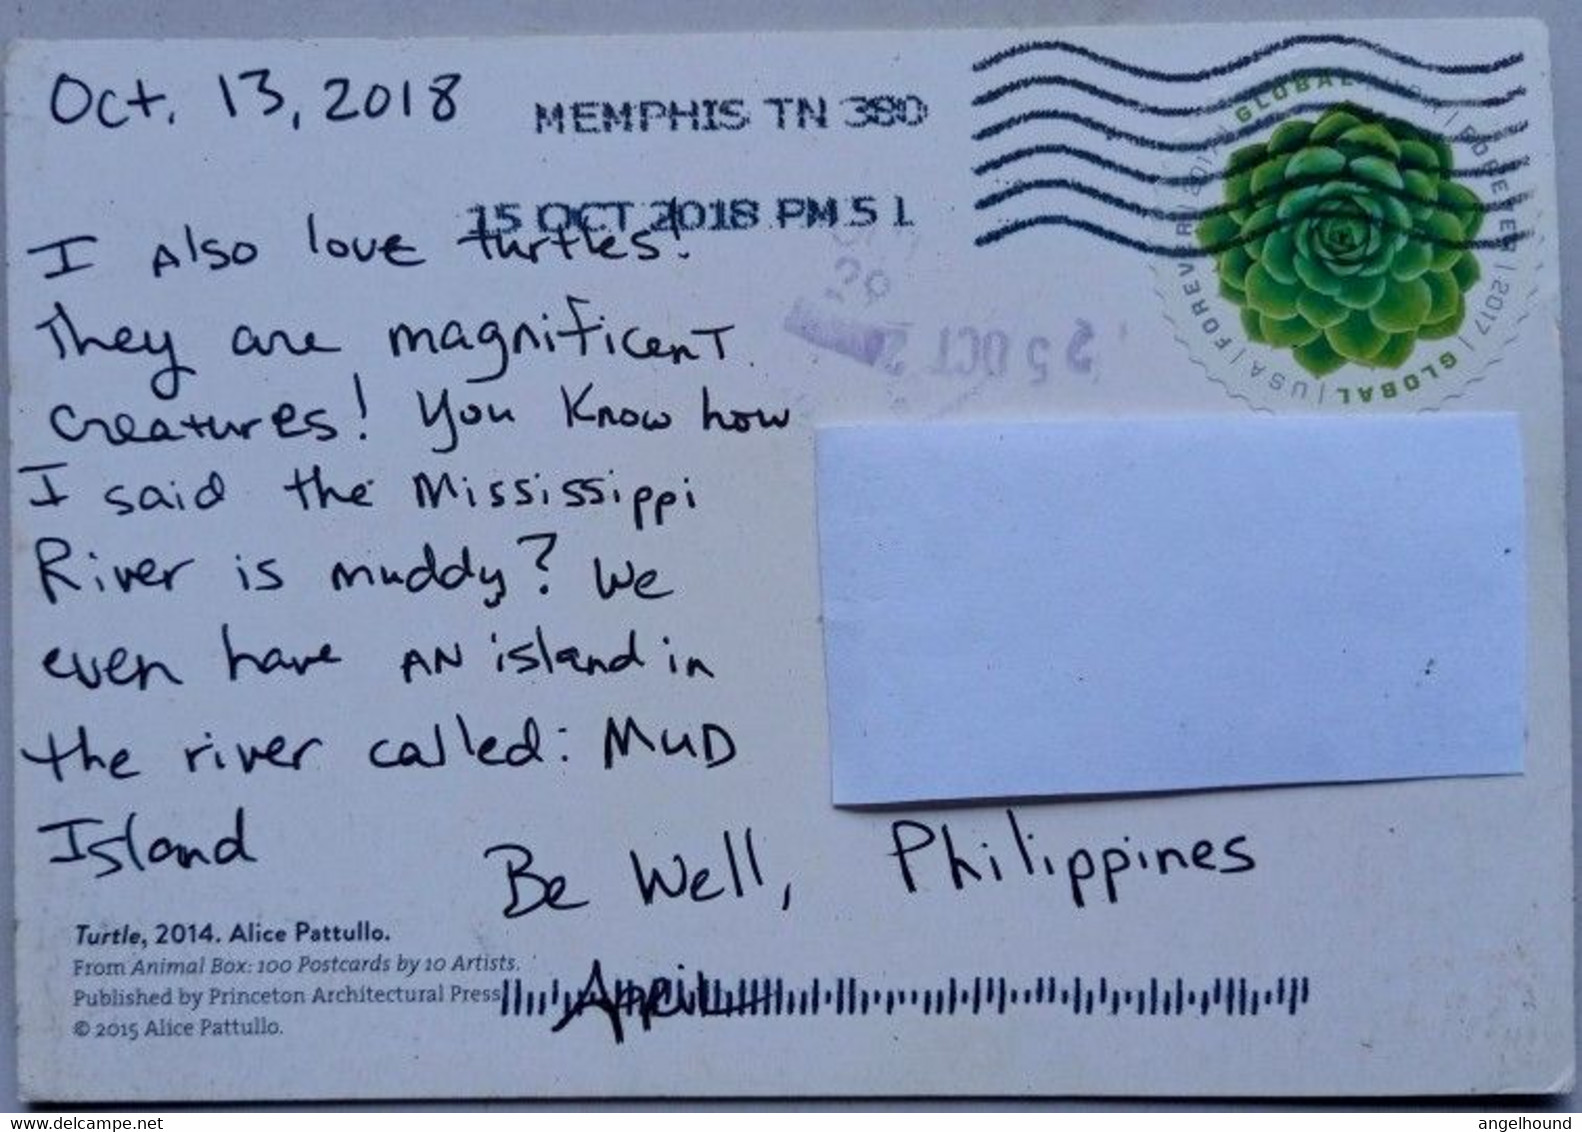 Oct. 13, 2018
MEMPHIS TN 380
15 OCT 2018 PM 5 L
GLOBAL | USA | FOREVER | 2017 | GLOBAL | USA | FOREVER | 2017
25 OCT 2
I also love turtles!
They are magnificent
creatures! You know how
I said the Mississippi
River is muddy? We
even have AN island in
the river called: MUD
Island
Be Well,
Philippines
April
Turtle, 2014. Alice Pattullo.
From Animal Box: 100 Postcards by 10 Artists.
Published by Princeton Architectural Press
© 2015 Alice Pattullo.
www.delcampe.net
angelhound